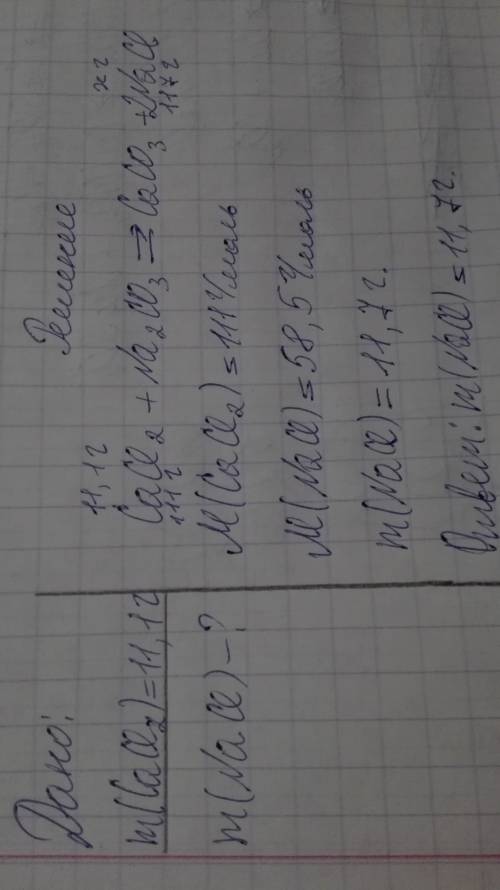 Дано:
m(CaCl₂)=11,1г
m(NaCl)-?
Решение
11,1г xг
CaCl₂ + Na₂CO₃ = CaCO₃ + 2NaCl
111г 117г
M(CaCl₂)=111г/моль
M(NaCl)=58,5г/моль
m(NaCl)=11,7г.
Ответ: m(NaCl)=11,7г.